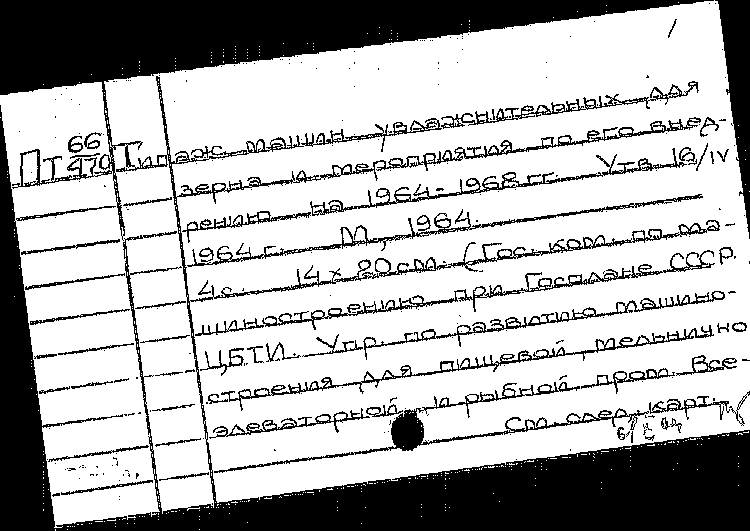 1
Пт 66/470 Типаж машин увлажнительных для
зерна и мероприятия по его внед-
рению на 1964-1968 гг. Утв. 16/IV
1964 г. М., 1964.
4 с. 14 x 20 см. (Гос. ком. по ма-
шиностроению при Госплане СССР.
ЦБТИ. Упр. по развитию машино-
строения для пищевой, мельнично
элеваторной и рыбной пром. Все-
См. след. карт.